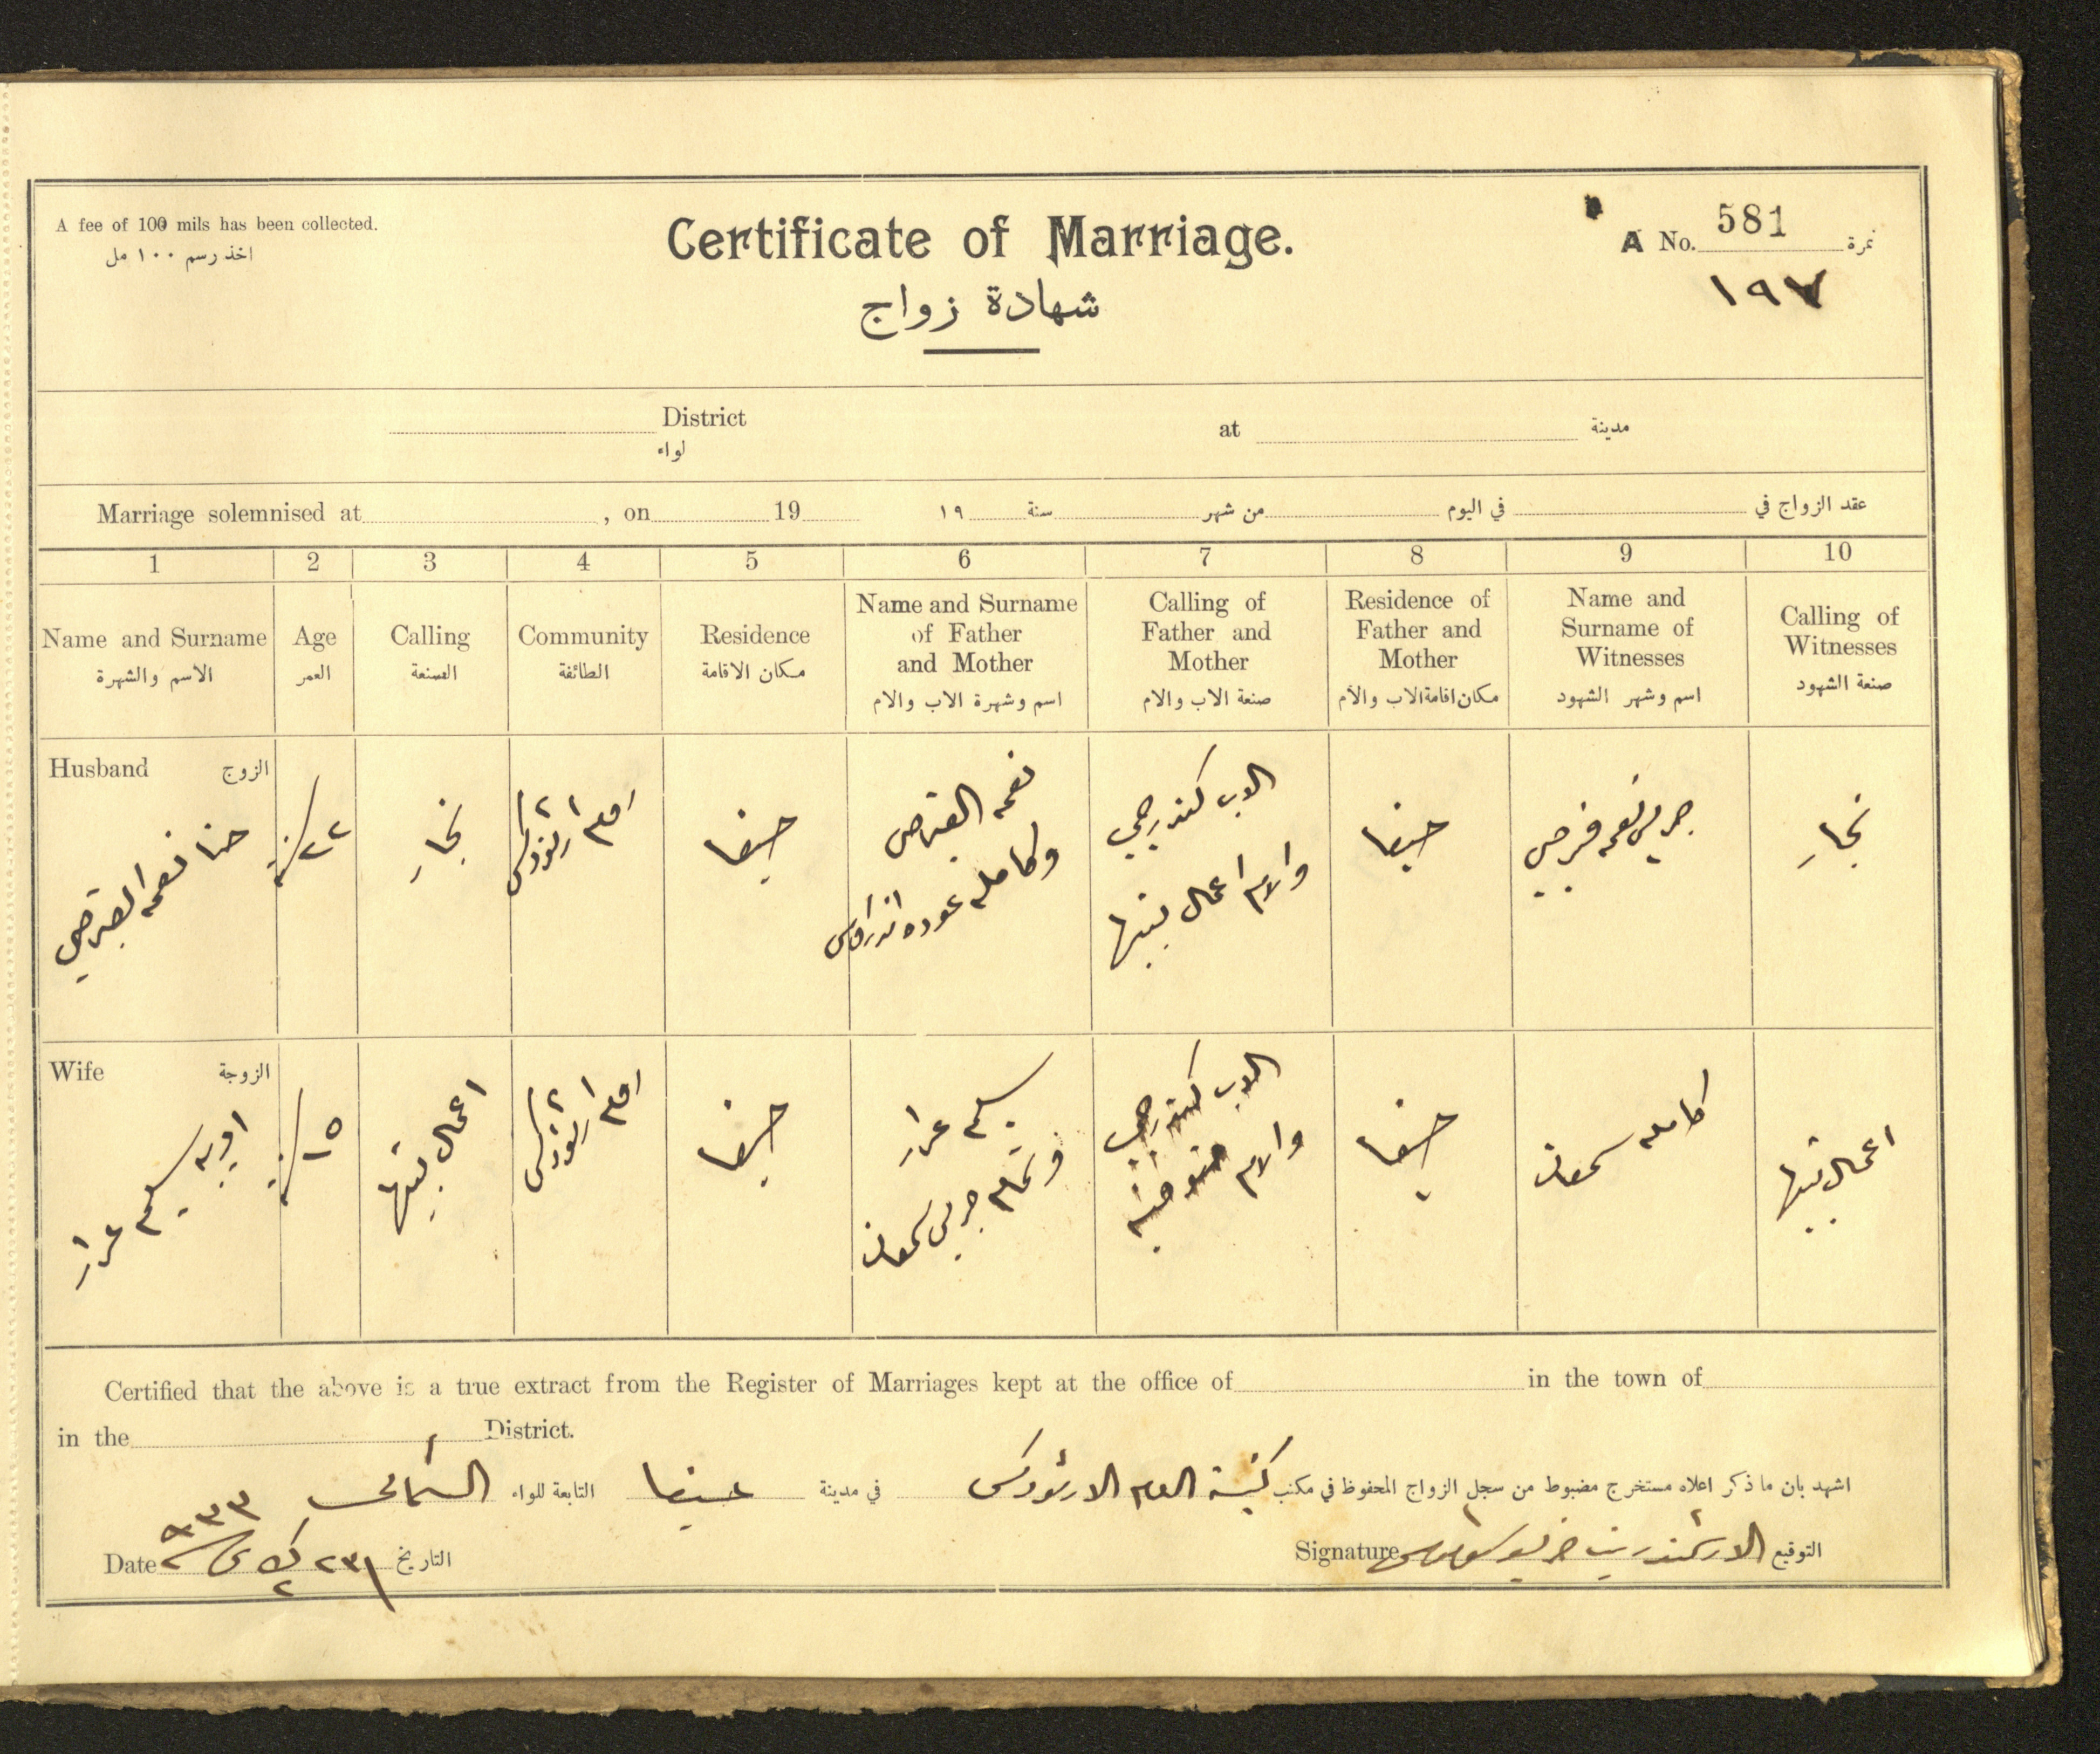 A fee of 100 mils has been collected.
اخذ رسم ١٠٠ مل
Certificate of Marriage.
شهادة زواج
A No. 581 نمرة
١٩٧
District
لواء
at مدينة
Marriage solemnised at , on 19 ١٩ سنة من شهر في اليوم عقد الزواج في
1 2 3 4 5 6 7 8 9 10
Name and Surname
الاسم والشهرة
Age
العمر
Calling
الصنعة
Community
الطائفة
Residence
مكان الاقامة
Name and Surname
of Father
and Mother
اسم وشهرة الاب والام
Calling of
Father and
Mother
صنعة الاب والام
Residence of
Father and
Mother
مكان اقامة الاب والام
Name and
Surname of
Witnesses
اسم وشهر الشهود
Calling of
Witnesses
صنعة الشهود
Husband الزوج
حنا نعمه القبرصي
٢٢
نجار
روم ارثوذكس
حيفا
نعمه القبرصي
وكامله عوده اندراوس
الاب كندرجي
والام اعمال بيتها
حيفا
جريس نعمه
نجار
Wife الزوجة
سليم عرار
١٥
اعمال بيتها
روم ارثوذكس
حيفا
سليم عرار
جريس سمعان
الاب كندرجي
والام متوفيه
حيفا
كامله سمعان
اعمال بيتها
Certified that the above is a true extract from the Register of Marriages kept at the office of in the town of
in the District.
اشهد بان ما ذكر اعلاه مستخرج مضبوط من سجل الزواج المحفوظ في مكتب كنيسة الروم الارثوذكس في مدينة حيفا التابعة للواء الشمالي
التوقيع الارشمندريت Signature
التاريخ ٢٣ ك ٢ ٩٣٣ Date